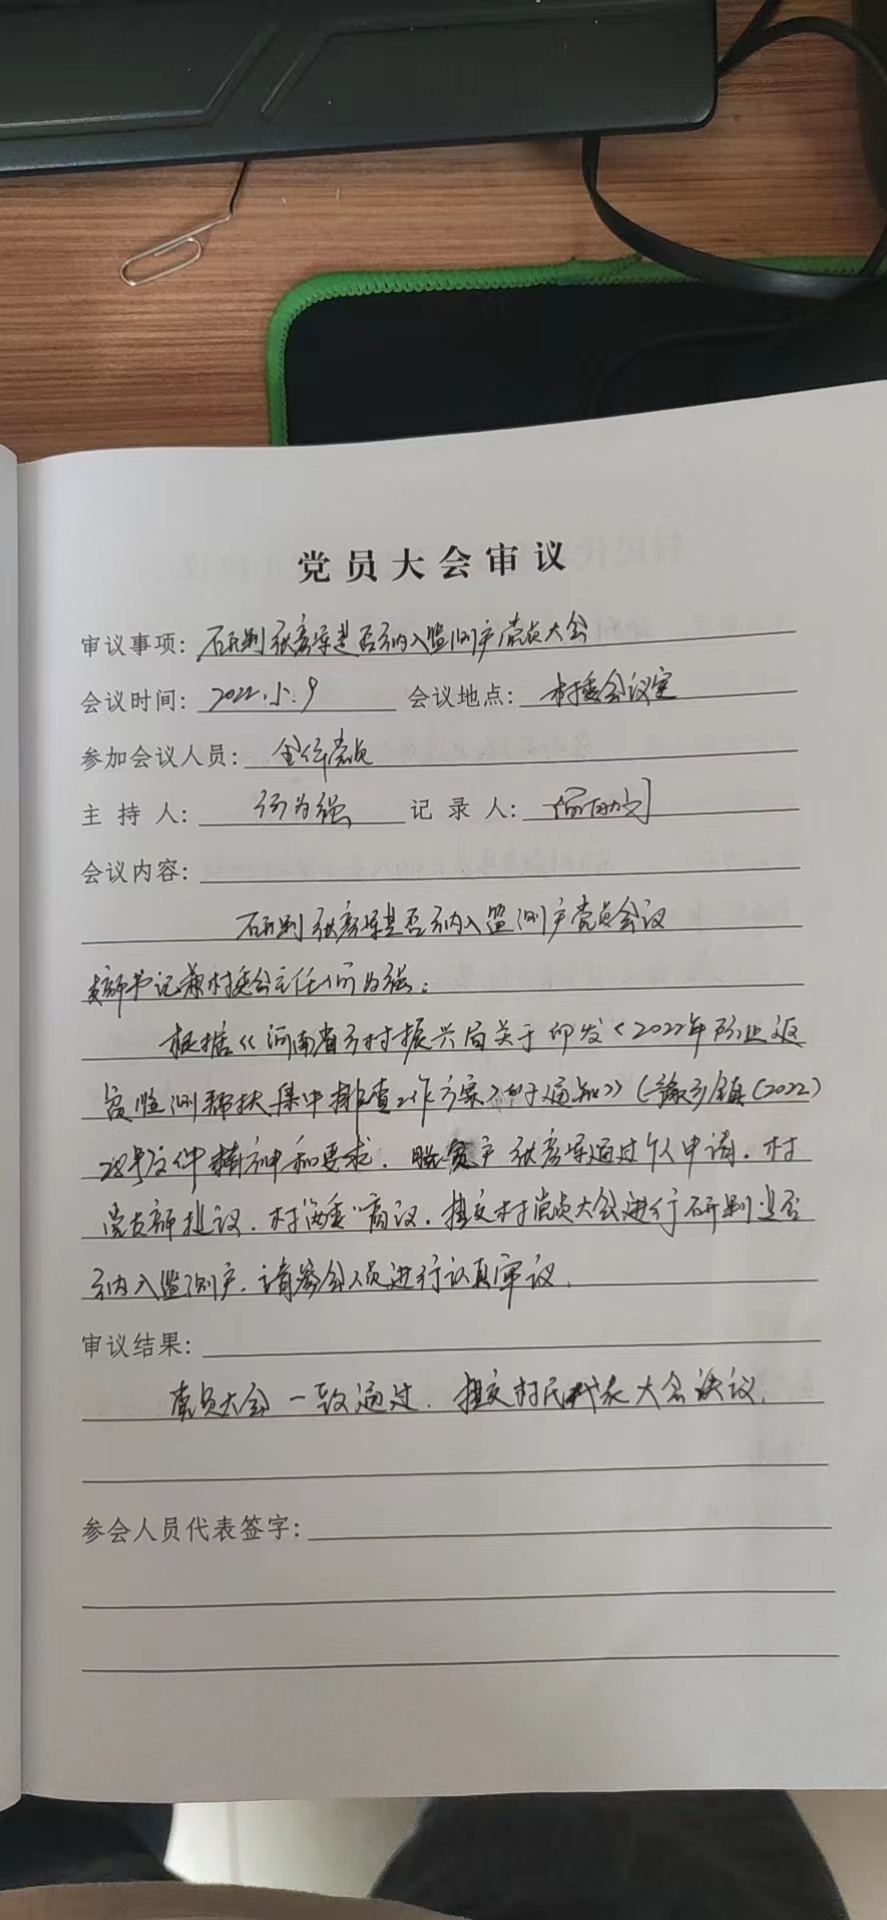 党员大会审议
审议事项: 研判张彦军是否纳入监测户党员大会
会议时间: 2022.5.9 会议地点: 村委会议室
参加会议人员: 全体党员
主持人: 何为强 记录人:
会议内容:
研判张彦军是否纳入监测户党员会议
支部书记兼村委会主任何为强:
根据《河南省乡村振兴局关于印发<2022年防止返
贫监测帮扶集中排查工作方案>的通知》(豫乡镇(2022)
28号文件精神和要求.脱贫户张彦军通过个人申请.村
党支部提议.村"两委"商议.提交村党员大会进行研判是否
纳入监测户.请参会人员进行认真审议.
审议结果:
党员大会一致通过.提交村民代表大会决议.
参会人员代表签字: